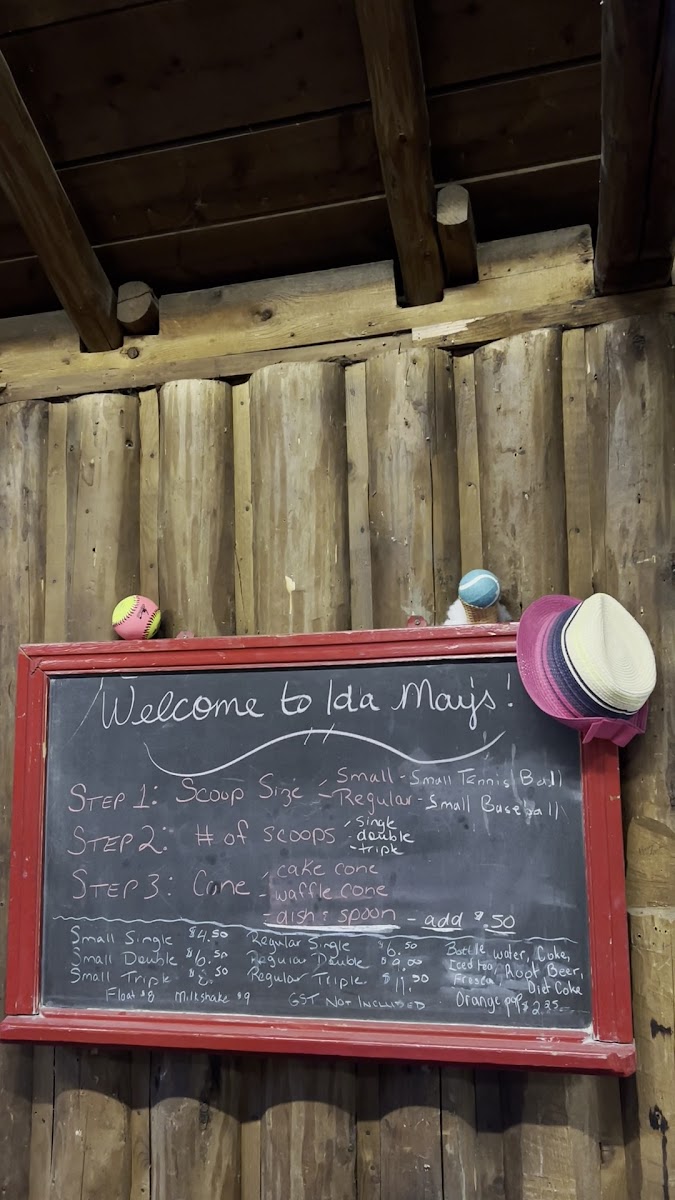 Welcome to Ida May's!
STEP 1: Scoop Size - Small - Small Tennis Ball
- Regular - Small Baseball
STEP 2: # of scoops - single
- double
- triple
STEP 3: Cone - cake cone
- waffle cone
- dish & spoon - add $.50
Small Single $4.50 Regular Single $6.50
Small Double $6.50 Regular Double $9.00
Small Triple $8.50 Regular Triple $11.50
Float $8 Milkshake $9 GST NOT INCLUDED
Bottle water, Coke,
Iced tea, Root Beer,
Fresca, Diet Coke
Orange pop $2.35